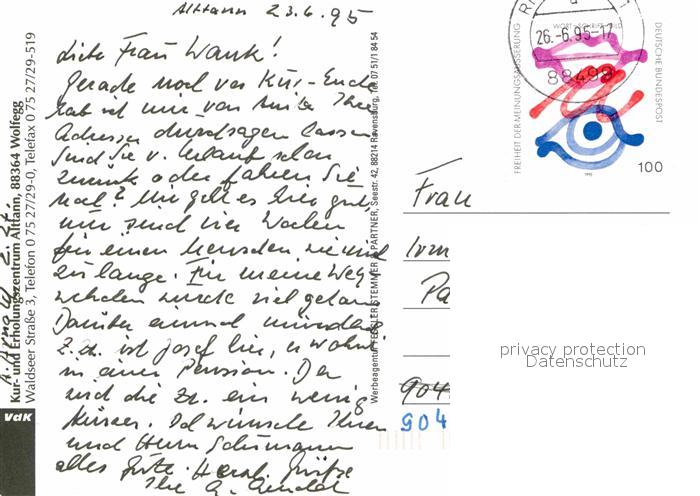 Altann 23.6.95
Liebe Frau Wank!
Gerade noch vor Kur-Ende
hab ich mir von Anita Ihre
Adresse durchsagen lassen
Sind Sie v. Urlaub schon
zurück oder fahren Sie
noch? Mir geht es hier gut,
nur sind vier Wochen
für einen Menschen wie mich
zu lange. Für meine Weg
wehchen wurde viel getan
Darüber einmal mündlich
z.Zt. ist Josef hier, er wohnt
in einer Pension. Der
wird die Zt. ein wenig
kürzer. Ich wünsche Ihnen
und Herrn Schumann
alles Gute. Herzl. Grüße
Ihre
VdK
Kur- und Erholungszentrum Altann, 88364 Wolfegg
Waldseer Straße 3, Telefon 0 75 27/29-0, Telefax 0 75 27/29-519
Werbeagentur FESSLER STEMMER & PARTNER, Seestr. 42, 88214 Ravensburg, Tel. 07 51/1 84 54
26.-6.95-17
88499
WORT • SCHRIFT • BILD
FREIHEIT DER MEINUNGSÄUSSERUNG
DEUTSCHE BUNDESPOST
1995
100
Frau
Irm
Pa
904
904
privacy protection
Datenschutz